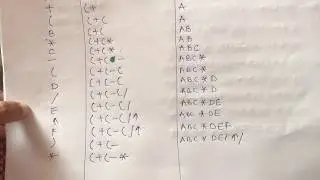 + (+ A
( (+( A
B (+( AB
* (+(* AB
C (+(* ABC
- (+(- ABC*
( (+(-( ABC*
D (+(-( ABC*D
/ (+(-(/ ABC*D
E (+(-(/ ABC*DE
↑ (+(-(/↑ ABC*DE
F (+(-(/↑ ABC*DEF
) (+(- ABC*DEF↑/
* (+(-*